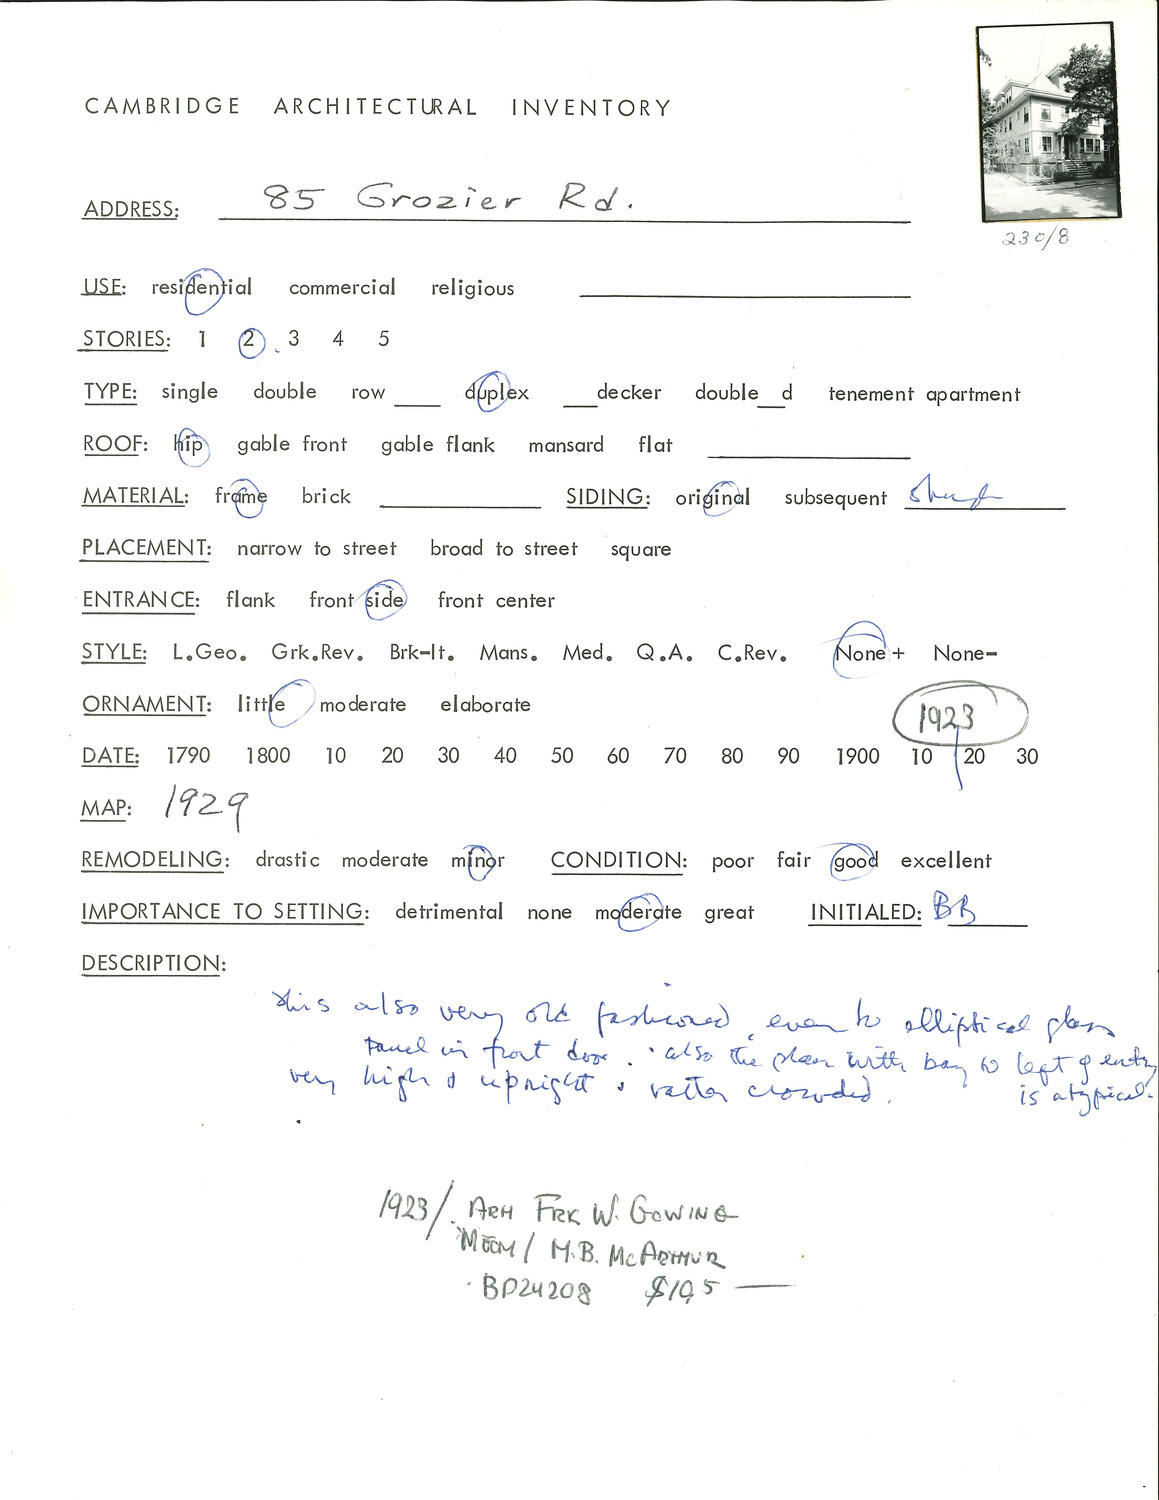 CAMBRIDGE ARCHITECTURAL INVENTORY
230/8
ADDRESS: 85 Grozier Rd.
USE: residential commercial religious
STORIES: 1 2 3 4 5
TYPE: single double row ___ duplex ___decker double__d tenement apartment
ROOF: hip gable front gable flank mansard flat
MATERIAL: frame brick SIDING: original subsequent
PLACEMENT: narrow to street broad to street square
ENTRANCE: flank front side front center
STYLE: L.Geo. Grk.Rev. Brk-It. Mans. Med. Q.A. C.Rev. None+ None-
ORNAMENT: little moderate elaborate
1923
DATE: 1790 1800 10 20 30 40 50 60 70 80 90 1900 10 20 30
MAP: 1929
REMODELING: drastic moderate minor CONDITION: poor fair good excellent
IMPORTANCE TO SETTING: detrimental none moderate great INITIALED: BB
DESCRIPTION:
this also very old fashioned, even to elliptical glass
panel in front door. also the plan with bay to left of entry
is atypical.
very high & upright & rather crowded.
1923/ ARH FRK W. GOWING
M.B. McARTHUR
BP24208 $10,5 —